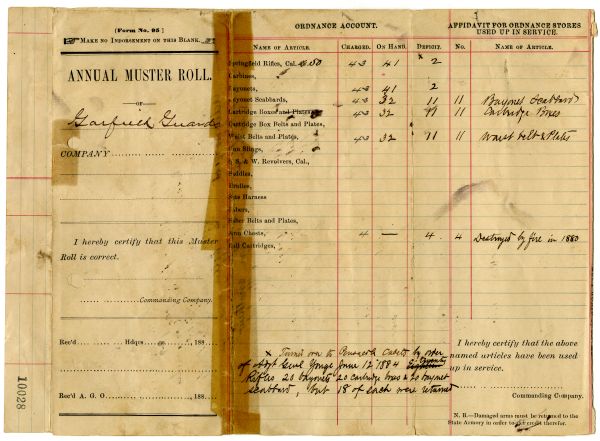 [Form No. 95]
MAKE NO INDORSEMENT ON THIS BLANK.
ANNUAL MUSTER ROLL.
OF
Garfield Guards
COMPANY
I hereby certify that this Muster
Roll is correct.
Commanding Company.
Rec'd Hdqrs. 188
Rec'd A. G. O. , 188
10028
ORDNANCE ACCOUNT.
NAME OF ARTICLE. CHARGED. ON HAND. DEFICIT.
Springfield Rifles, Cal. 50 43 41 x 2
Carbines,
Bayonets, 43 41 2
Bayonet Scabbards, 43 32 11
Cartridge Boxes and Plates, 43 32 11
Cartridge Box Belts and Plates,
Waist Belts and Plates, 43 32 11
Gun Slings,
S. & W. Revolvers, Cal.,
Saddles,
Bridles,
Sets Harness
Sabers,
Saber Belts and Plates,
Arm Chests, 4 — 4
Ball Cartridges,
x Turned over to Pensacola Cadets by order
of Adjt Genl Yonge June 12 1884 Eighteen Twenty
Rifles 20 bayonets 20 cartridge boxes & 20 bayonet
scabbard, but 18 of each were returned
AFFIDAVIT FOR ORDNANCE STORES
USED UP IN SERVICE.
No. NAME OF ARTICLE.
11 Bayonet Scabbards
11 Cartridge Boxes
11 Waist belt & Plates
4 Destroyed by fire in 1880
I hereby certify that the above
named articles have been used
up in service.
Commanding Company.
N. B.—Damaged arms must be returned to the
State Armory in order to get credit therefor.